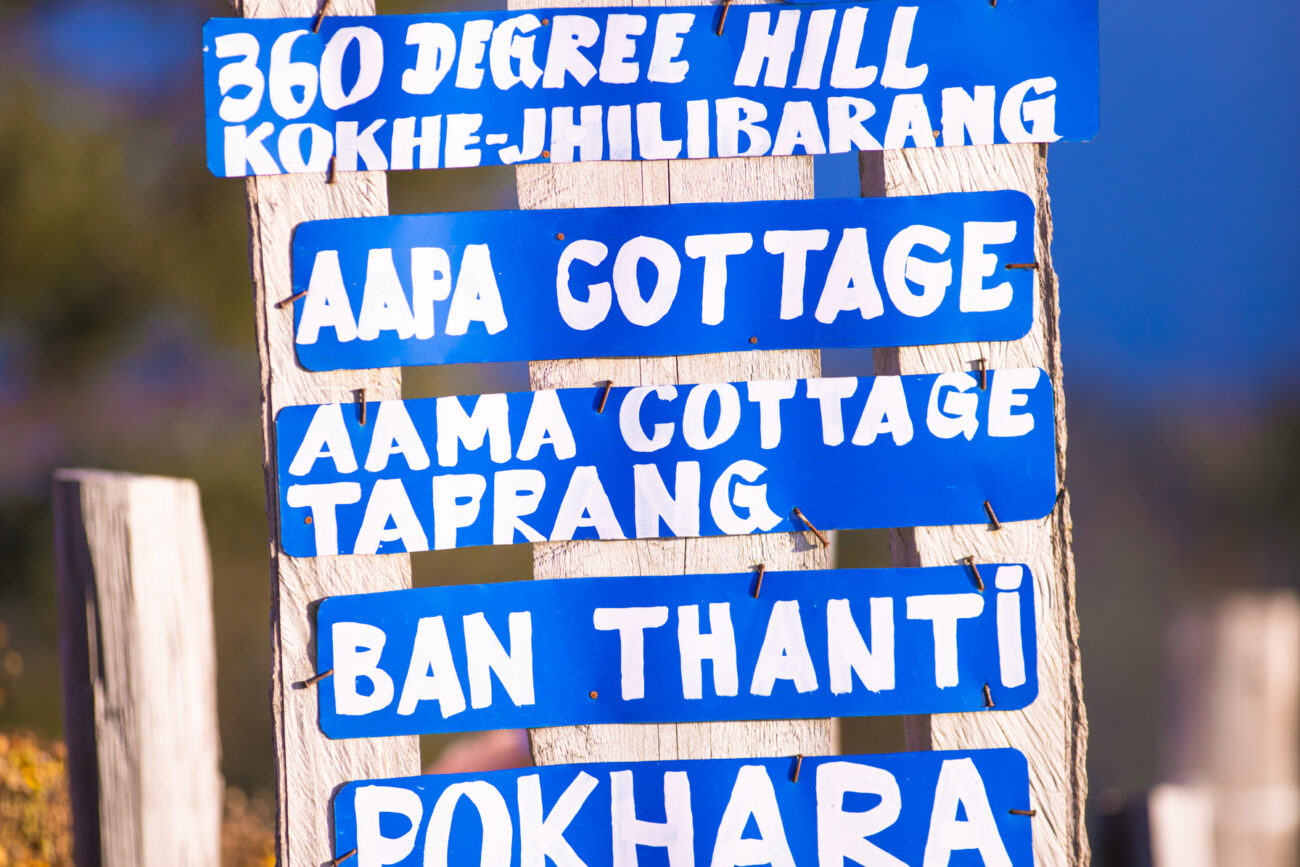 360 DEGREE HILL
KOKHE-JHILIBARANG
AAPA COTTAGE
AAMA COTTAGE
TAPRANG
BAN THANTi
POKHARA